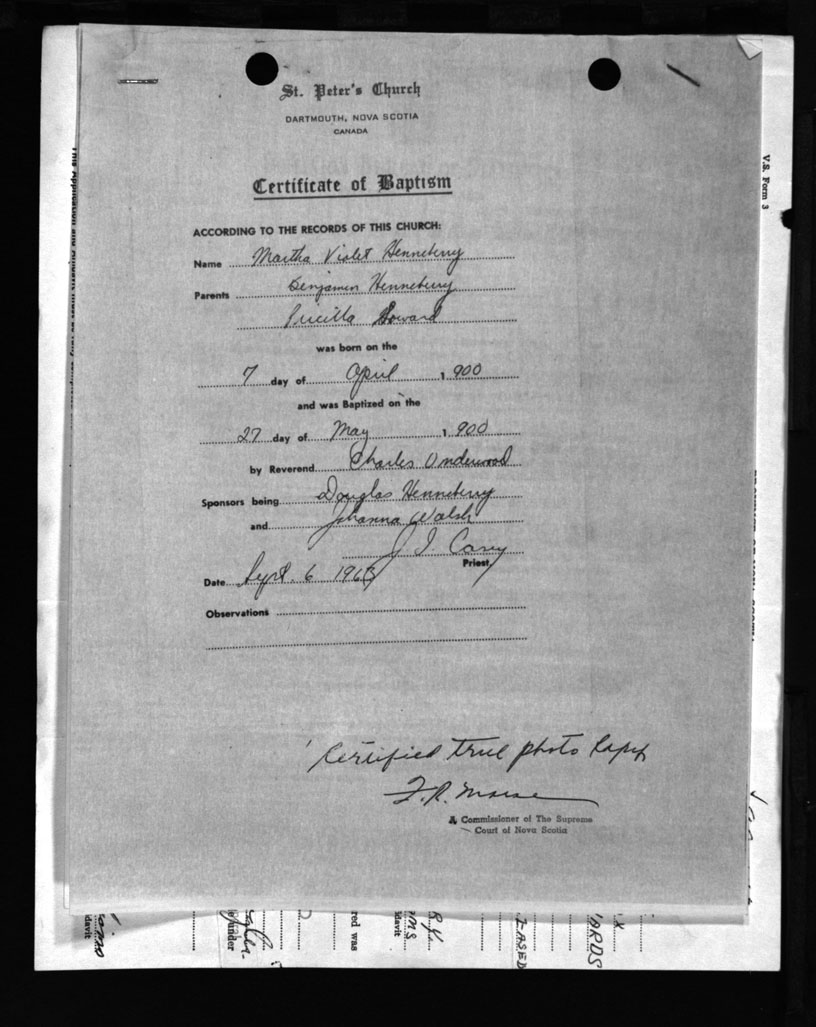 St. Peter's Church
DARTMOUTH, NOVA SCOTIA
CANADA
Certificate of Baptism
ACCORDING TO THE RECORDS OF THIS CHURCH:
Name Martha Violet Henneberry
Parents Benjamin Henneberry
Pricilla Howard
was born on the
7 day of April 1 900
and was Baptized on the
27 day of May 1 900
by Reverend Charles Underwood
Sponsors being Douglas Henneberry
and Johanna Walsh
J I Casey
Priest
Date Sept. 6 1963
Observations
Certified true photo Copy
F. R. Morse
A Commissioner of The Supreme
Court of Nova Scotia
V.S. Form 3
davit
under
red was
davit